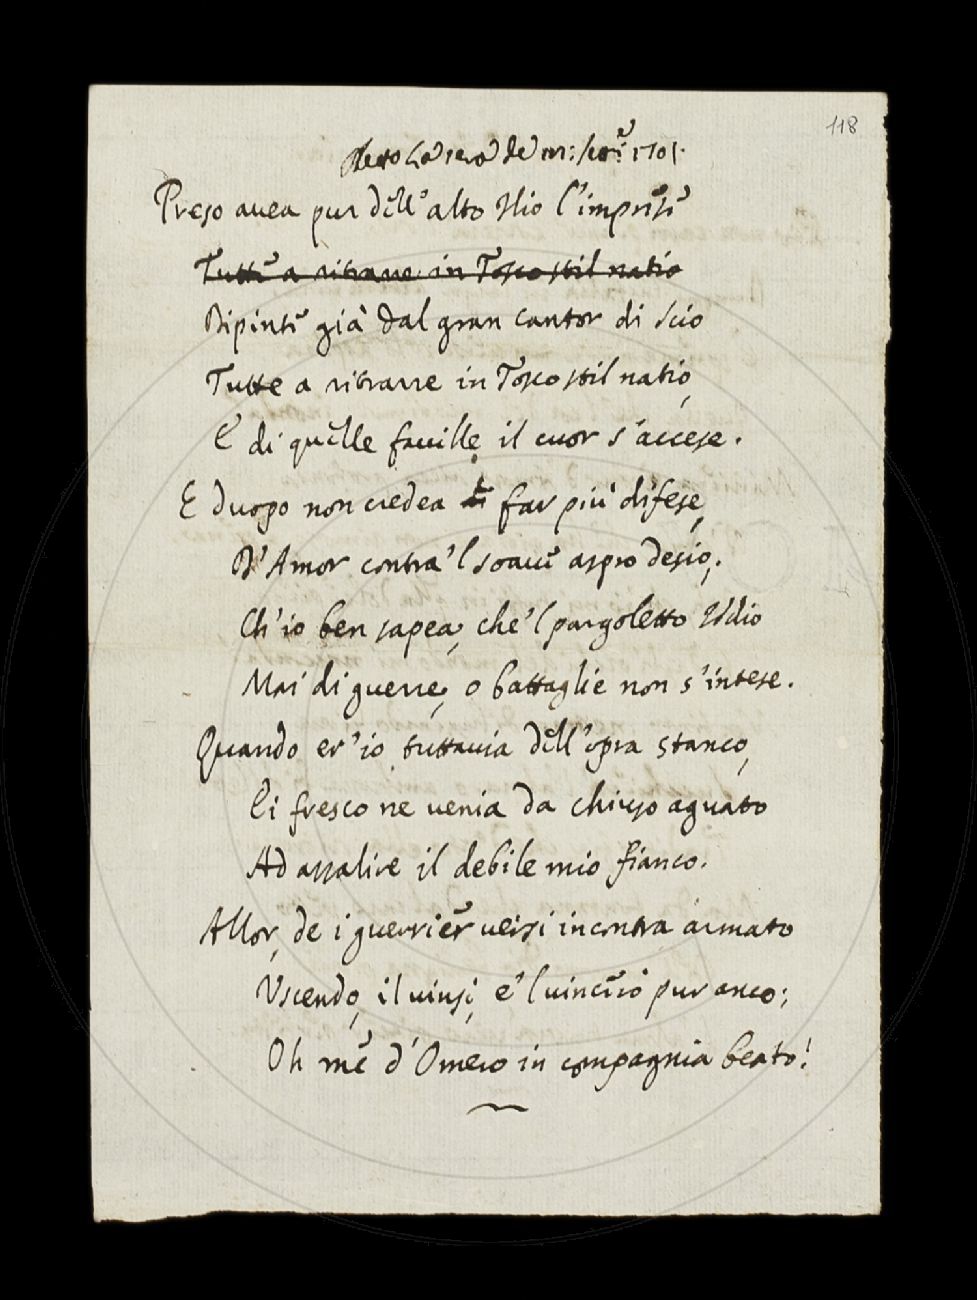 118
sera de 1701.
Preso auea pur dell'alto Ilio l'imprese
Tutte a ritrarre in Tosco stil natio
Dipinte già dal gran Cantor di Scio
Tutte a ritrarre in Tosco stil natio,
E di quelle fauille il cuor s'accese.
E d'uopo non credea far più difese,
D'Amor contra'l soaue aspro desio;
Ch'io ben sapea, che'l pargoletto Iddio
Mai di guerre, o battaglie non s'intese.
Quando er'io tuttauia dell'opra stanco,
Ei fresco ne uenia da chiuso aguato
Ad assalire il debile mio fianco.
Allor, de i guerrier uersi incontra armato
Uscendo, il uinsi, e'l uincerò pur anco;
Oh me d'Omero in compagnia beato!